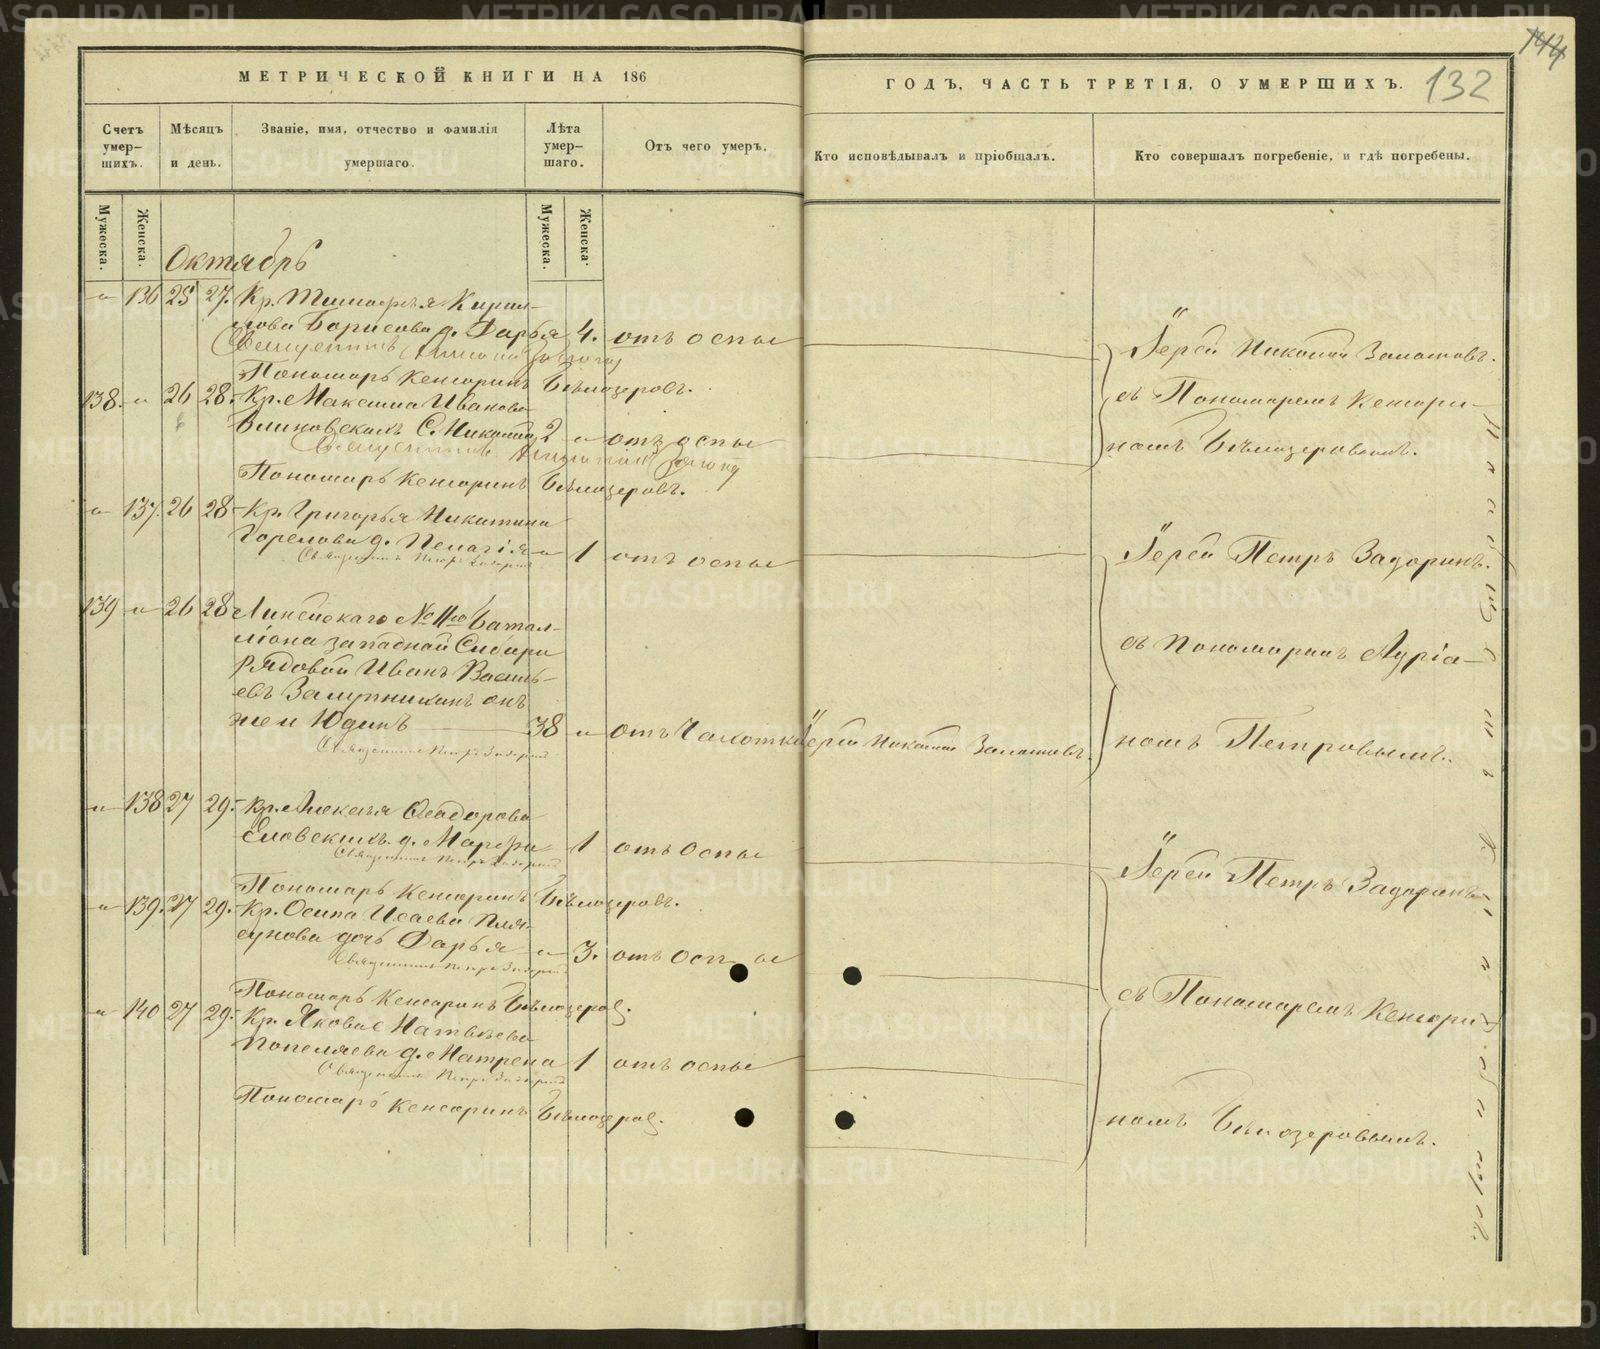 МЕТРИЧЕСКОЙ КНИГИ НА 186
ГОДЪ, ЧАСТЬ ТРЕТІЯ, О УМЕРШИХЪ.
132
144
Счетъ умер-шихъ.
Мѣсяцъ и день.
Званіе, имя, отчество и фамилія умершаго.
Лѣта умер-шаго.
Отъ чего умеръ.
Кто исповѣдывалъ и пріобщалъ.
Кто совершалъ погребеніе, и гдѣ погребены.
Мужеска.
Женска.
Мужеска.
Женска.
Октябрь
136 25 27. Кр. Тимофея Кирил-
лова Борисова д. Дарья 4. отъ оспы
Пономарь Кенсоринъ Бѣлозеровъ.
138. 26 28. Кр. Максима Иванова
С. Николай 2 отъ оспы
Пономарь Кенсоринъ Бѣлозеровъ.
Іерей Николай
съ Пономаремъ Кенсори-
номъ Бѣлозеровымъ.
137. 26 28 Кр. Григорья Никитина
Горелова д. Пелагія 1 отъ оспы
Священникъ Петръ Задоринъ
139 26 28 Линейскаго № 11го Батал-
ліона западной Сибири
Рядовой Иванъ Василь-
евъ онъ
же и Юдинъ 38 отъ Чахотки
Іерей Николай
Священникъ Петръ Задоринъ
Іерей Петръ Задоринъ.
съ Пономаремъ Адріа-
номъ Петровымъ.
138 27 29. Кр. Алексея Феодорова
д. Марфа 1 отъ Оспы
Священникъ Петръ Задоринъ
Пономарь Кенсоринъ Бѣлозеровъ.
139. 27 29. Кр. Осипа Исаева Пля-
сунова дочь Дарья 3. отъ Оспы
Священникъ Петръ Задоринъ
Пономарь Кенсоринъ Бѣлозеров.
140 27 29. Кр. Якова Матвѣева
Попеляева д. Матрена 1 отъ оспы
Священникъ Петръ Задоринъ
Пономарь Кенсоринъ Бѣлозеров.
Іерей Петръ Задоринъ
съ Пономаремъ Кенсори-
номъ Бѣлозеровымъ.
METRIKI.GASO-URAL.RU